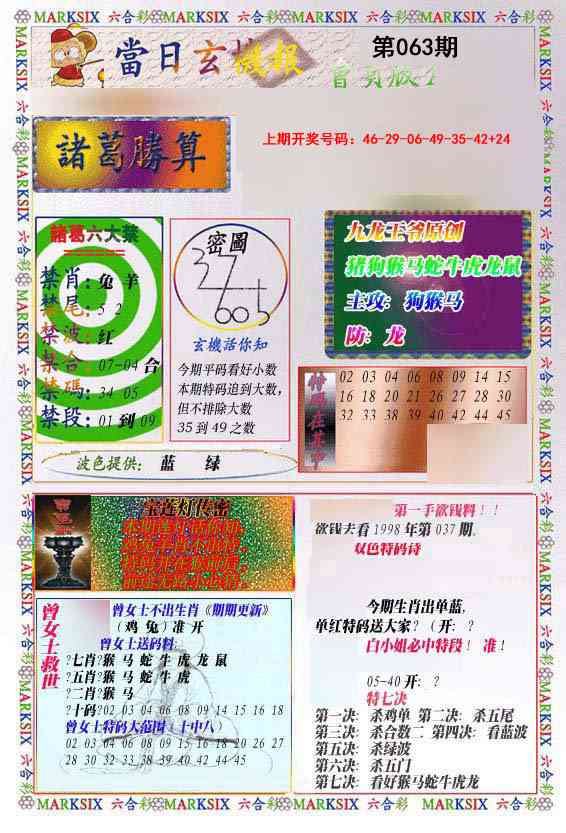 MARKSIX 六合彩 MARKSIX 六合彩 MARKSIX 六合彩 MARKSIX 六合彩 MARKSIX
當日玄機報
第063期
上期开奖号码：46-29-06-49-35-42+24
諸葛勝算
諸葛六大禁
禁肖：兔 羊
禁尾：5 2
禁波：红
禁合：07-04 合
禁碼：34 05
禁段：01 到 09
密圖
玄機活你知
今期平码看好小数
本期特码追到大数，
但不排除大数
35 到 49 之数
九龙王爷原创
猪狗猴马蛇牛虎龙鼠
主攻：狗猴马
防：龙
特码在其中
02 03 04 06 08 09 14 15
16 18 20 21 26 27 28 30
32 33 38 39 40 42 44 45
波色提供： 蓝 绿
宝莲灯传密
曾女士救世
曾女士不出生肖《期期更新》
（鸡 兔）准 开
曾女士送码料：
?七肖?猴 马 蛇 牛 虎 龙 鼠
?五肖?猴 马 蛇 牛 虎
?二肖?猴 马
?十码?02 03 04 06 08 09 14 15 16 18
曾女士特码大范围（十中八）
02 03 04 06 08 09 15 16 18 20 26 27
28 30 32 33 38 39 40 42 44 45
第一手欲钱料！！
欲钱去看 1998 年第 037 期。
双色特码诗
今期生肖出单蓝，
单红特码送大家？（开：？
白小姐必中特段！ 准！
05-40 开：？
特七决
第一决：杀鸡单 第二决：杀五尾
第三决：杀合数二 第四决：看蓝波
第五决：杀绿波
第六决：杀五门
第七决：看好猴马蛇牛虎龙
MARKSIX 六合彩 MARKSIX 六合彩 MARKSIX 六合彩 MARKSIX 六合彩 MARKSIX